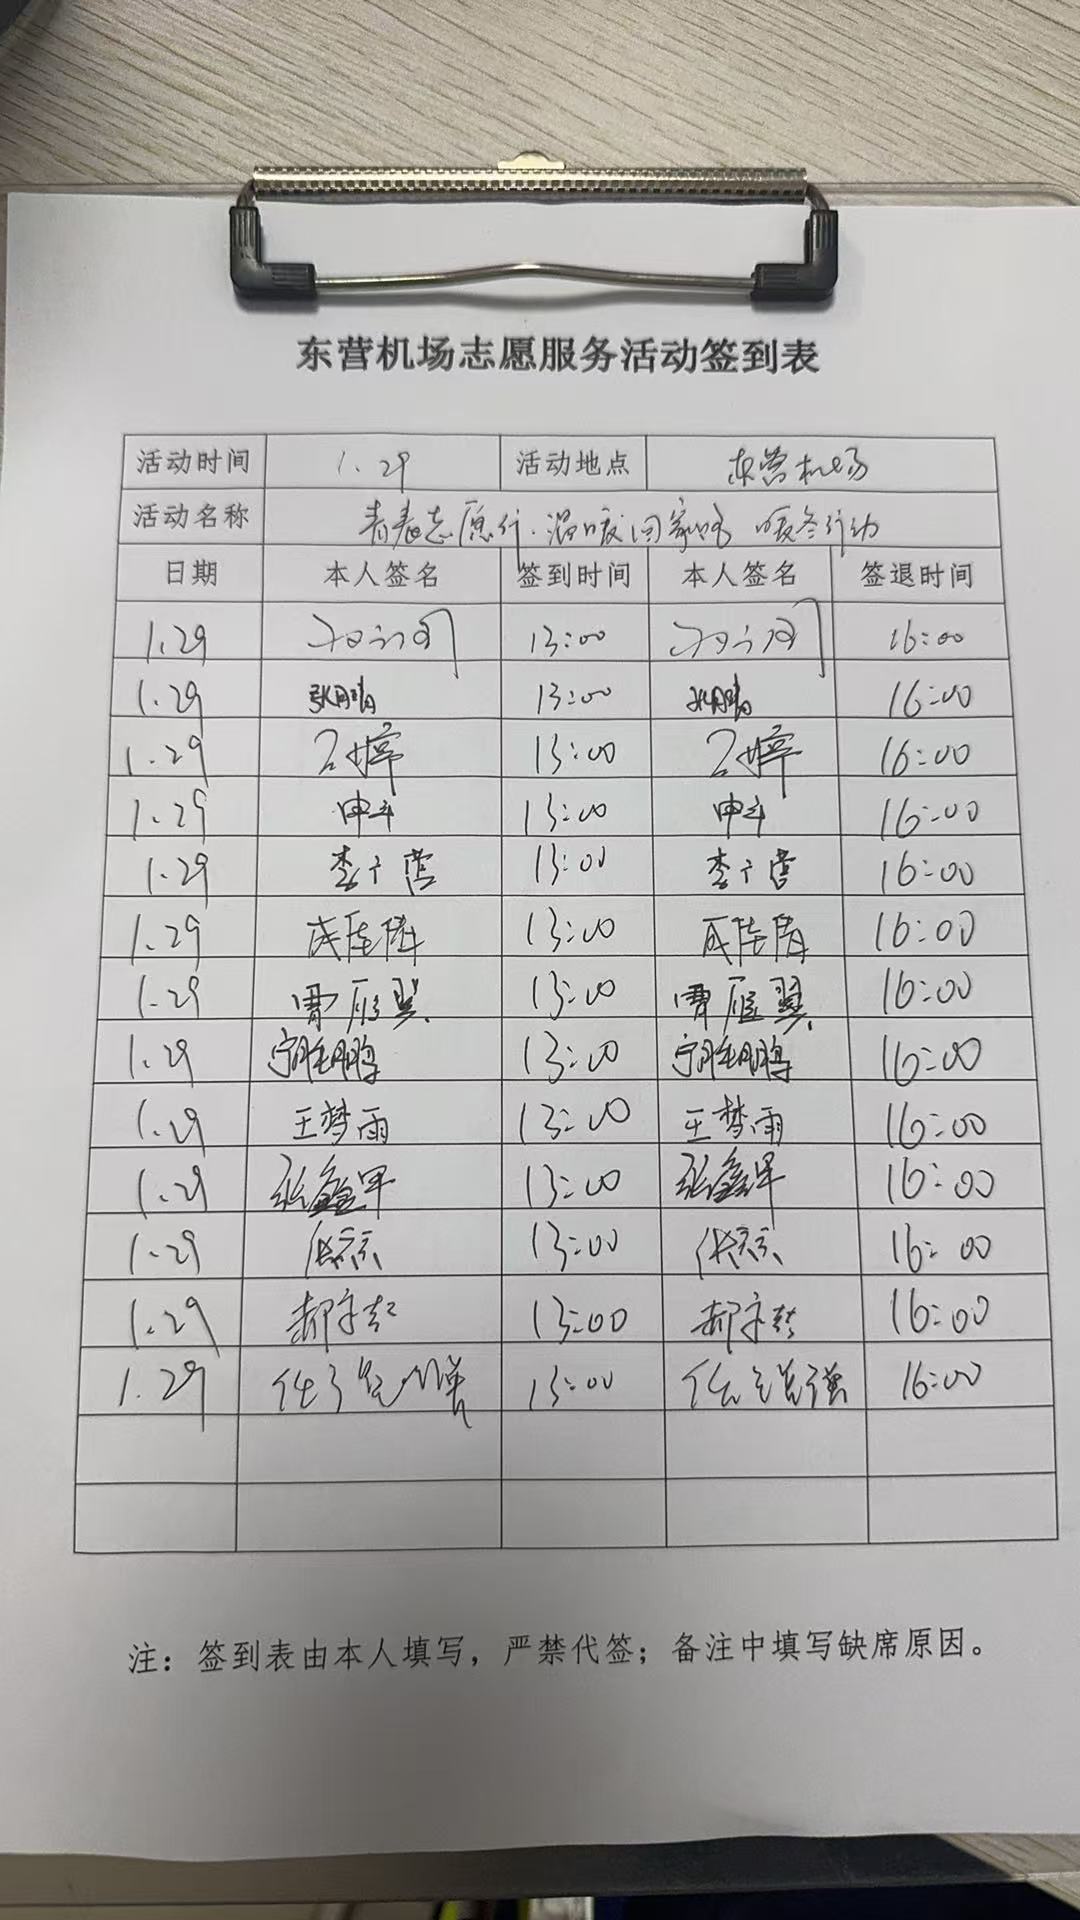 东营机场志愿服务活动签到表
活动时间 1.29 活动地点 东营机场
活动名称 青春志愿行·温暖回家路 暖冬行动
日期 本人签名 签到时间 本人签名 签退时间
1.29 13:00 16:00
1.29 张鹏 13:00 张鹏 16:00
1.29 13:00 16:00
1.29 申斗 13:00 申斗 16:00
1.29 李广营 13:00 李广营 16:00
1.29 13:00 16:00
1.29 贾雁翼 13:00 贾雁翼 16:00
1.29 宁胜鹏 13:00 宁胜鹏 16:00
1.29 王梦雨 13:00 王梦雨 16:00
1.29 张鑫军 13:00 张鑫军 16:00
1.29 13:00 16:00
1.29 13:00 16:00
1.29 13:00 16:00
注：签到表由本人填写，严禁代签；备注中填写缺席原因。